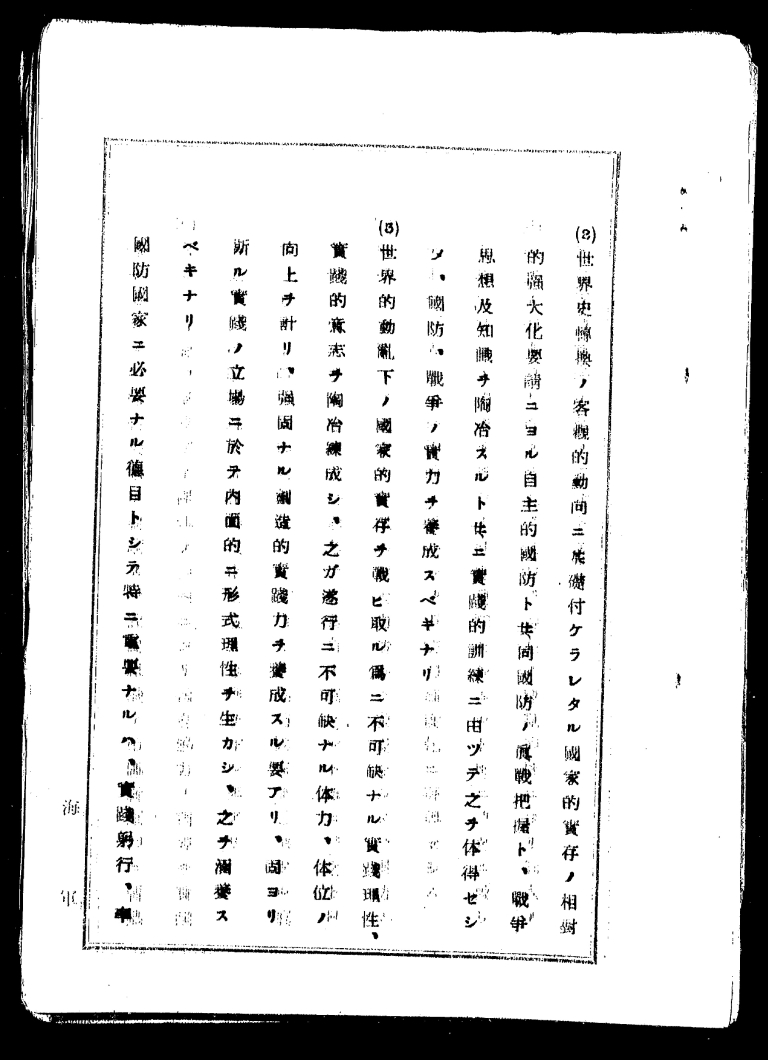 (2)世界史轉換ノ客觀的動向ニ基礎付ケラレタル國家的實存ノ相對
的强大化要請ニヨル自主的國防ト共同國防ノ眞戰把握ト、戰爭
思想及知識ヲ陶冶スルト共ニ實踐的訓練ニ由ツテ之ヲ体得セシ
メ、國防、戰爭ノ實力ヲ養成スベキナリ
(3)世界的動亂下ノ國家的實存ヲ戰ヒ取ル爲ニ不可缺ナル實踐理性、
實踐的意志ヲ陶冶練成シ、之ガ遂行ニ不可缺ナル体力、体位ノ
向上ヲ計リ、强固ナル創造的實踐力ヲ養成スル要アリ、固ヨリ
斯ル實踐ノ立場ニ於テ内面的ニ形式理性ヲ生カシ、之ヲ涵養ス
ベキナリ
國防國家ニ必要ナル德目トシテ特ニ重要ナルハ、實踐躬行、率
海軍